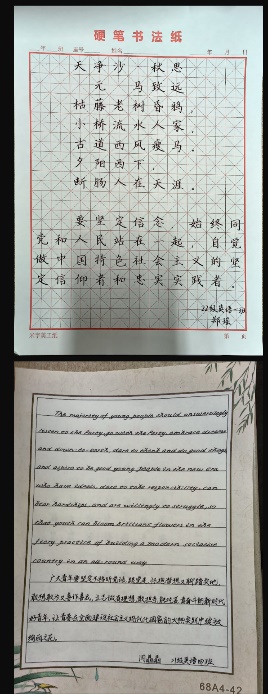 硬笔书法纸
天净沙 秋思
元 马致远
枯藤老树昏鸦，
小桥流水人家，
古道西风瘦马。
夕阳西下，
断肠人在天涯。
要坚定信念 始终同
党和人民站在一起，自觉
做中国特色社会主义的坚
定信仰者和忠实实践者。
22级英语一班
The majority of young people should unswervingly
listen to the Party, go with the Party, embrace dreams
and down-to-earth, dare to think and do good things,
and aspire to be good young people in the new era
who have ideals, dare to take responsibility, can
bear hardships, and are willing to struggle, so
that youth can bloom brilliant flowers in the
fiery practice of building a modern socialist
country in an all-round way.
广大青年要坚定不移听党话、跟党走，怀抱梦想又脚踏实地，
敢想敢为又善作善成，立志做有理想、敢担当、能吃苦、肯奋斗的新时代
好青年，让青春在全面建设社会主义现代化国家的火热实践中绽放
绚丽之花。
级英语四班
68A4-42